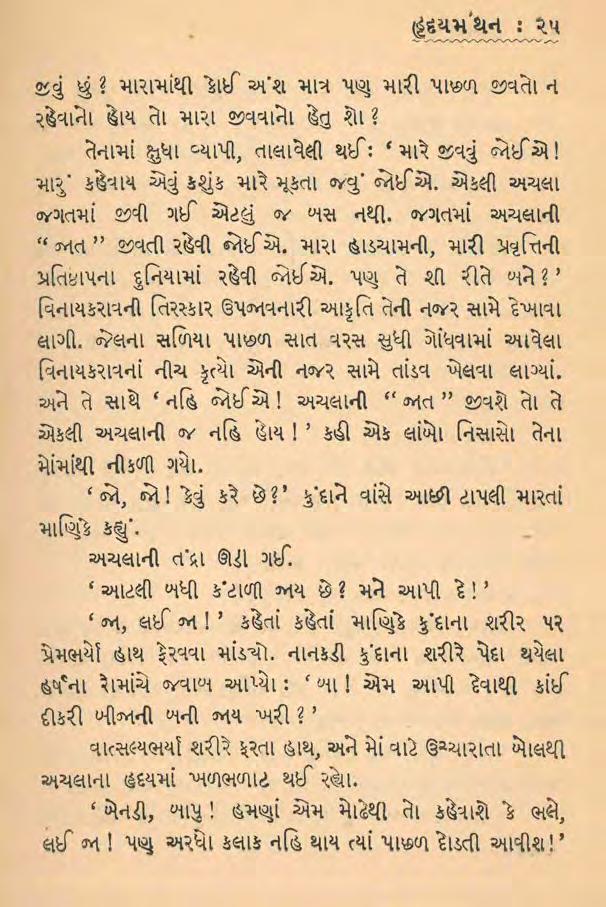 હૃદયમંથન : ૨૫
જીવું છું ? મારામાંથી કોઈ અંશ માત્ર પણ મારી પાછળ જીવતો ન
રહેવાનો હોય તો મારા જીવવાનો હેતુ શો ?
તેનામાં ક્ષુધા વ્યાપી, તાલાવેલી થઈ : ‘ મારે જીવવું જોઈએ !
મારું કહેવાય એવું કશુંક મારે મૂકતા જવું જોઈએ. એકલી અચલા
જગતમાં જીવી ગઈ એટલું જ બસ નથી. જગતમાં અચલાની
“ જાત ” જીવતી રહેવી જોઈએ. મારા હાડચામની, મારી પ્રવૃત્તિની
પ્રતિષ્ઠાપના દુનિયામાં રહેવી જોઈએ. પણ તે શી રીતે બને ? ’
વિનાયકરાવની તિરસ્કાર ઉપજાવનારી આકૃતિ તેની નજર સામે દેખાવા
લાગી. જેલના સળિયા પાછળ સાત વરસ સુધી ગોંધવામાં આવેલા
વિનાયકરાવનાં નીચ કૃત્યો એની નજર સામે તાંડવ ખેલવા લાગ્યાં.
અને તે સાથે ‘ નહિ જોઈએ ! અચલાની “ જાત ” જીવશે તો તે
એકલી અચલાની જ નહિ હોય ! ’ કહી એક લાંબો નિસાસો તેના
મોંમાંથી નીકળી ગયો.
‘ જો, જો ! કેવું કરે છે ? ’ કુંદાને વાંસે આછી ટાપલી મારતાં
માણિકે કહ્યું.
અચલાની તંદ્રા ઊડી ગઈ.
‘ આટલી બધી કંટાળી જાય છે ? મને આપી દે ! ’
‘ જા, લઈ જા ! ’ કહેતાં કહેતાં માણિકે કુંદાના શરીર પર
પ્રેમભર્યો હાથ ફેરવવા માંડ્યો. નાનકડી કુંદાના શરીરે પેદા થયેલા
હર્ષના રોમાંચે જવાબ આપ્યો : ‘ બા ! એમ આપી દેવાથી કાંઈ
દીકરી બીજાની બની જાય ખરી ? ’
વાત્સલ્યભર્યા શરીરે ફરતા હાથ, અને મોં વાટે ઉચ્ચારાતા બોલથી
અચલાના હૃદયમાં ખળભળાટ થઈ રહ્યો.
‘ બેનડી, બાપુ ! હમણાં એમ મોઢેથી તો કહેવાશે કે ભલે,
લઈ જા ! પણ અરધો કલાક નહિ થાય ત્યાં પાછળ દોડતી આવીશ ! ’